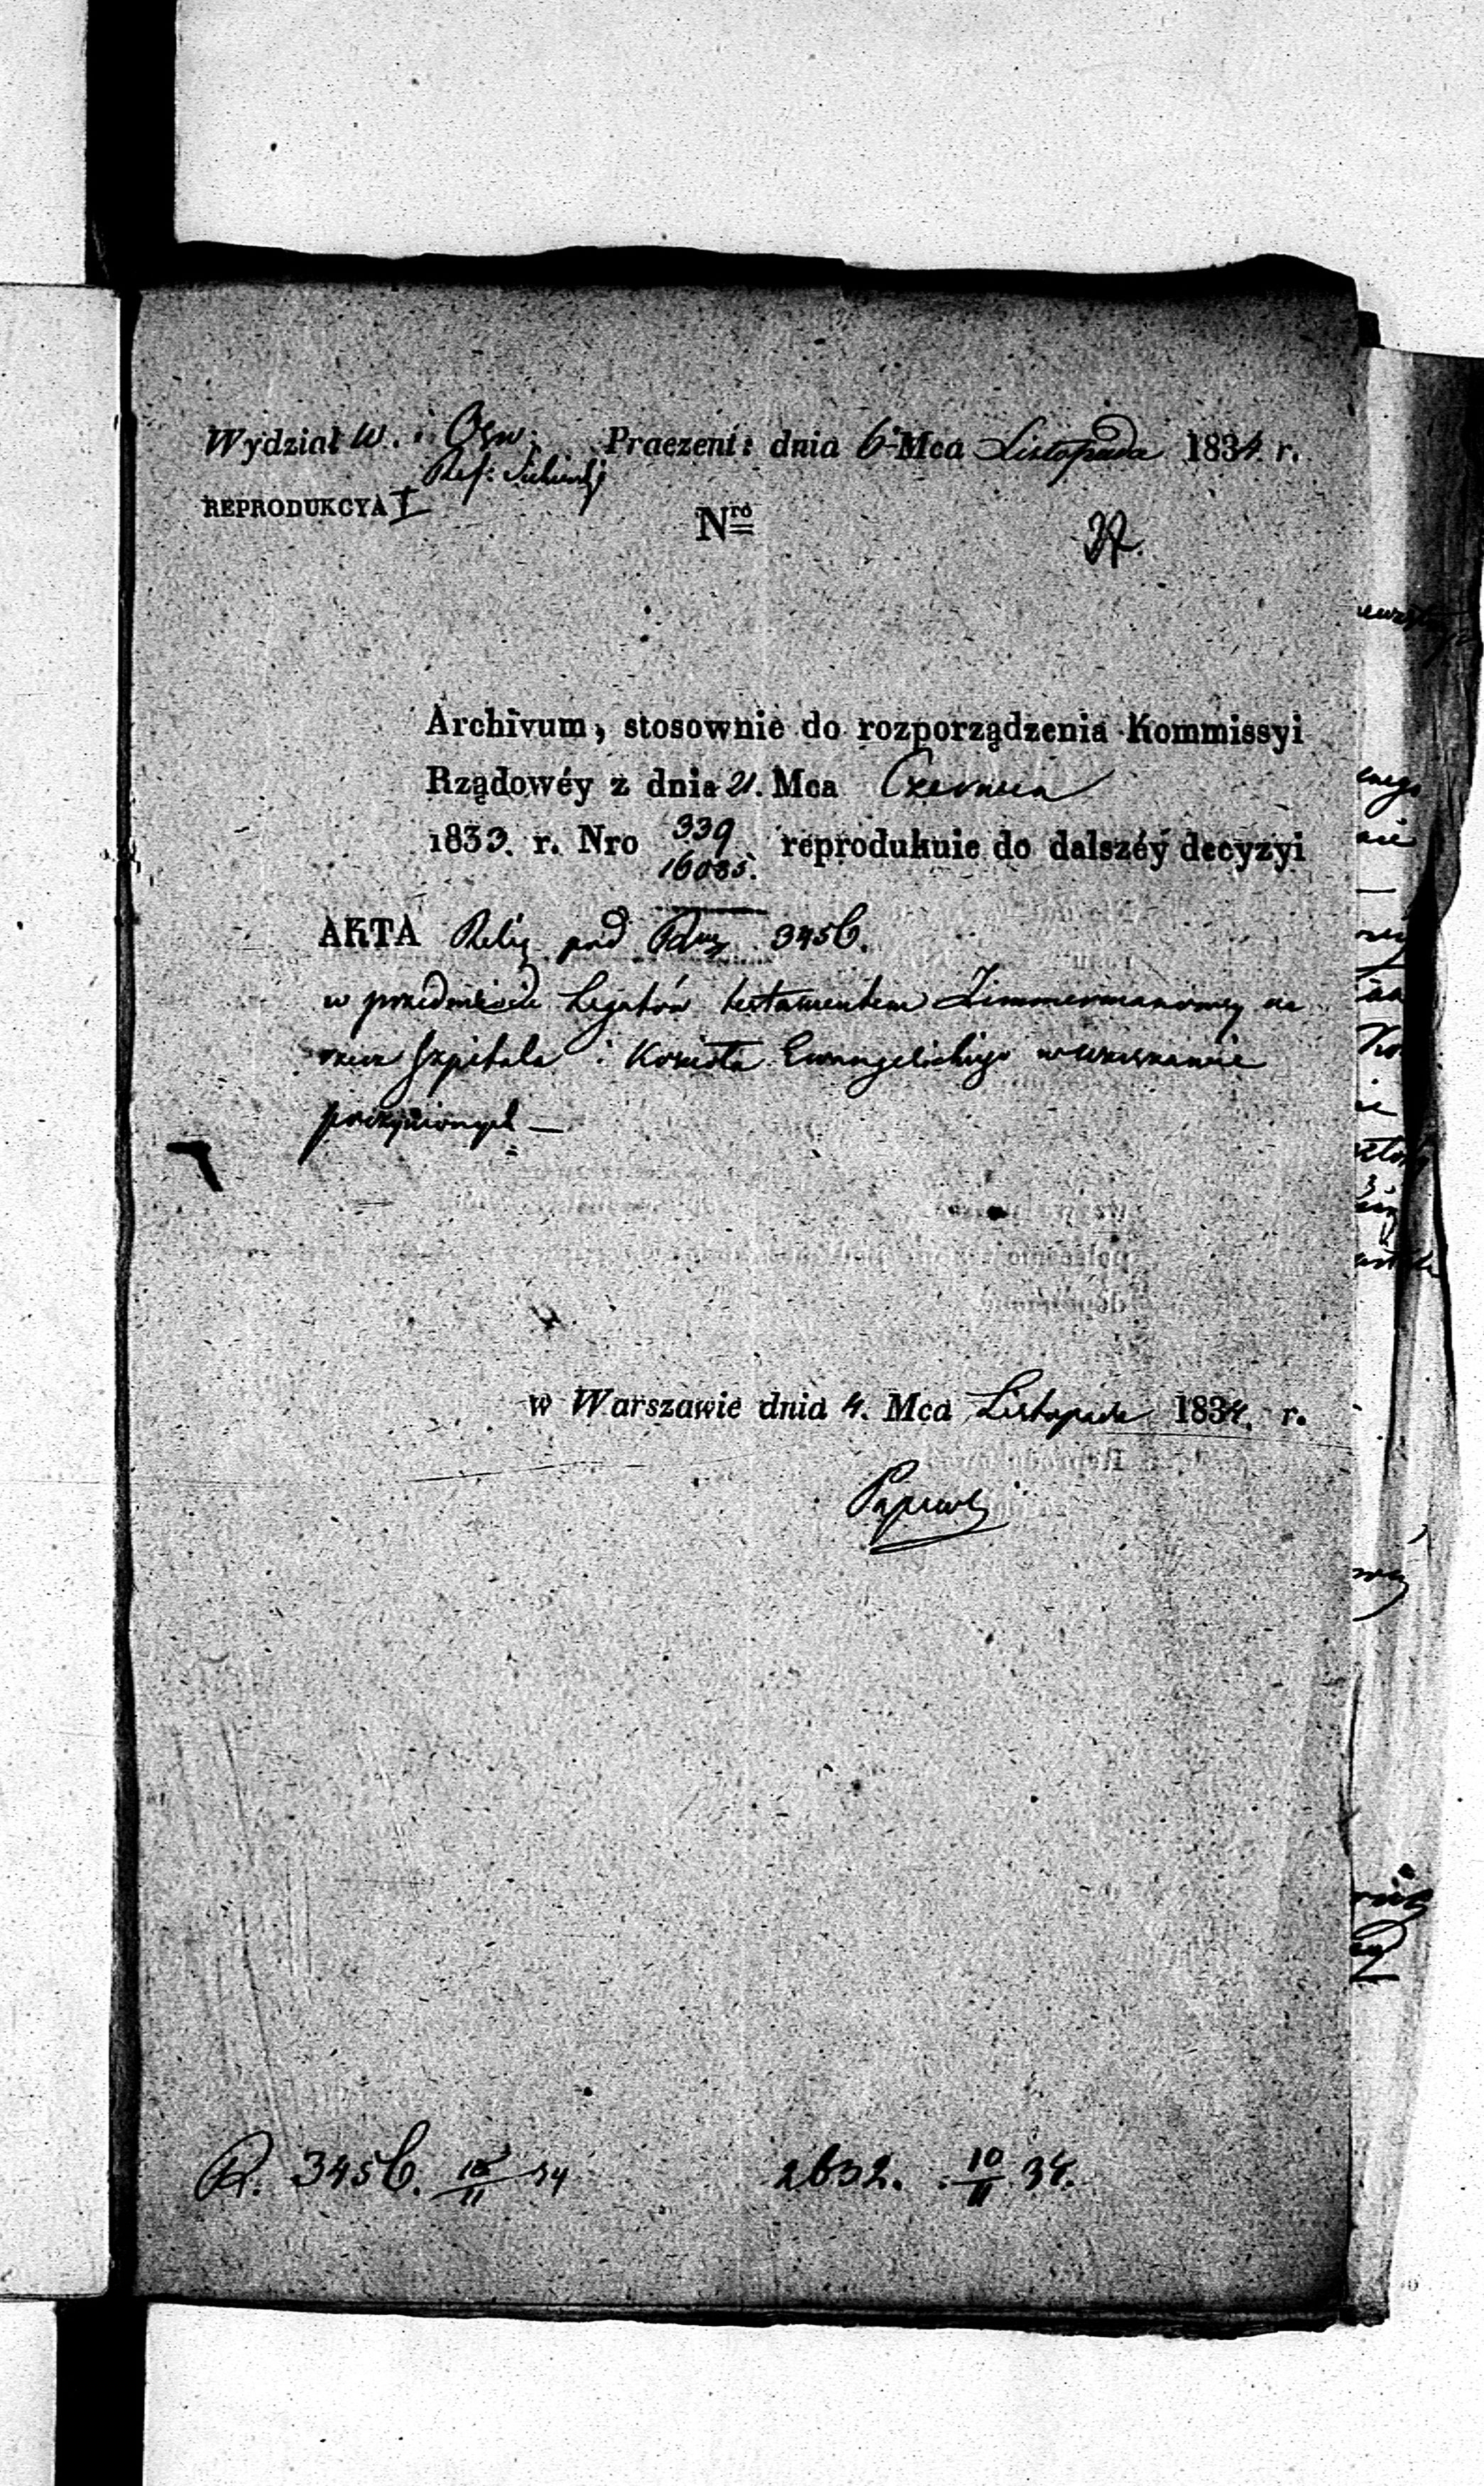 Wydział W. i Ośw. Praezent: dnia 6 Mca Listopada 1834. r.
Ref:
REPRODUKCYA I
Nro
Archivum, stosownie do rozporządzenia Kommissyi
Rządowéy z dnia 21. Mca Czerwca
1833. r. Nro 339 / 16085. reprodukuie do dalszéy decyzyi
AKTA Relig pod 3456.
w przedmiocie Legatów testamentem Zimmermanowey na
rzecz Szpitala i Kościoła Ewangelickiego w Warszawie
poczynionych —
w Warszawie dnia 4. Mca Listopada 1834. r.
R. 3456. 10/11 34 2632. 10/11 34.